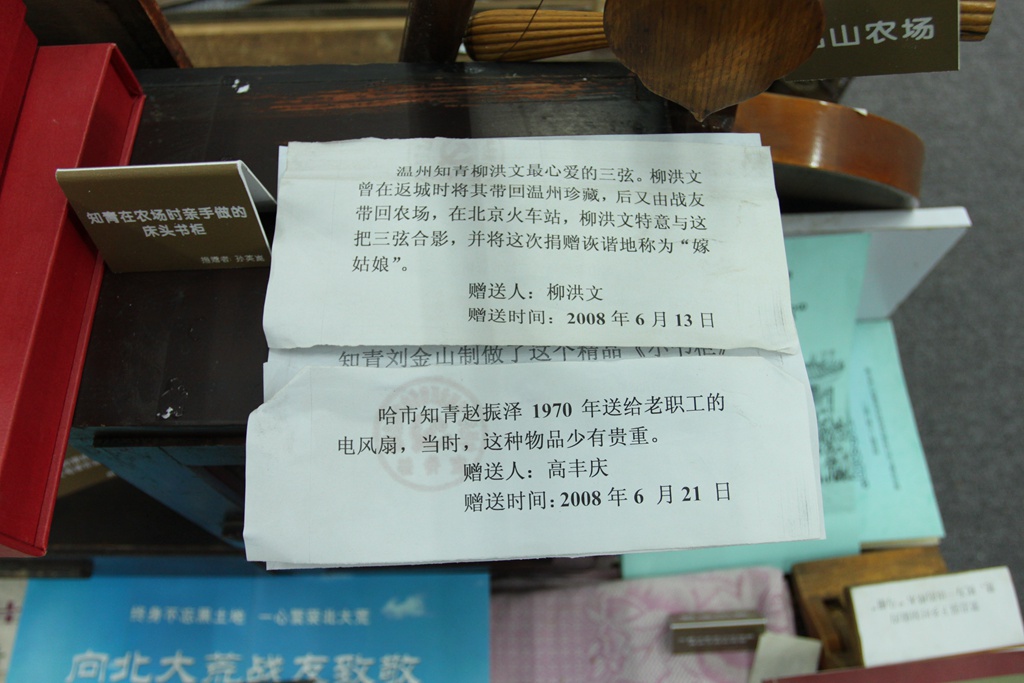 山农场
知青在农场时亲手做的
床头书柜
温州知青柳洪文最心爱的三弦。柳洪文
曾在返城时将其带回温州珍藏，后又由战友
带回农场，在北京火车站，柳洪文特意与这
把三弦合影，并将这次捐赠诙谐地称为“嫁
姑娘”。
赠送人：柳洪文
赠送时间：2008 年 6 月 13 日
知青刘金山制做了这个精品《小书柜》
哈市知青赵振泽 1970 年送给老职工的
电风扇，当时，这种物品少有贵重。
赠送人：高丰庆
赠送时间：2008 年 6 月 21 日
向北大荒战友致敬